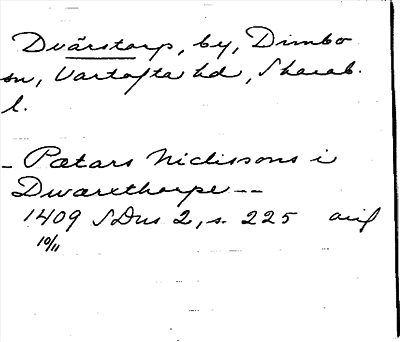 Dvärstorp, by, Dimbo
sn, Vartofta hd, Skarab.
l.
- Pætars Niclissons i
Dwærxthorpe --
1409 SDns 2, s. 225 avig
10/11